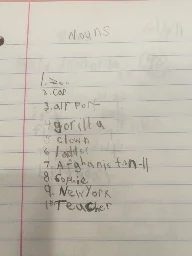 Nouns
1. Zoo
2. Car
3. air port
4 gorilla
5 clown
6
7. Afghanistan-11
8. Sophie
9. New York
10 Teacher